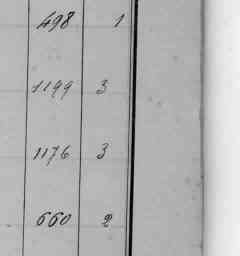 498 1
1199 3
1176 3
660 2